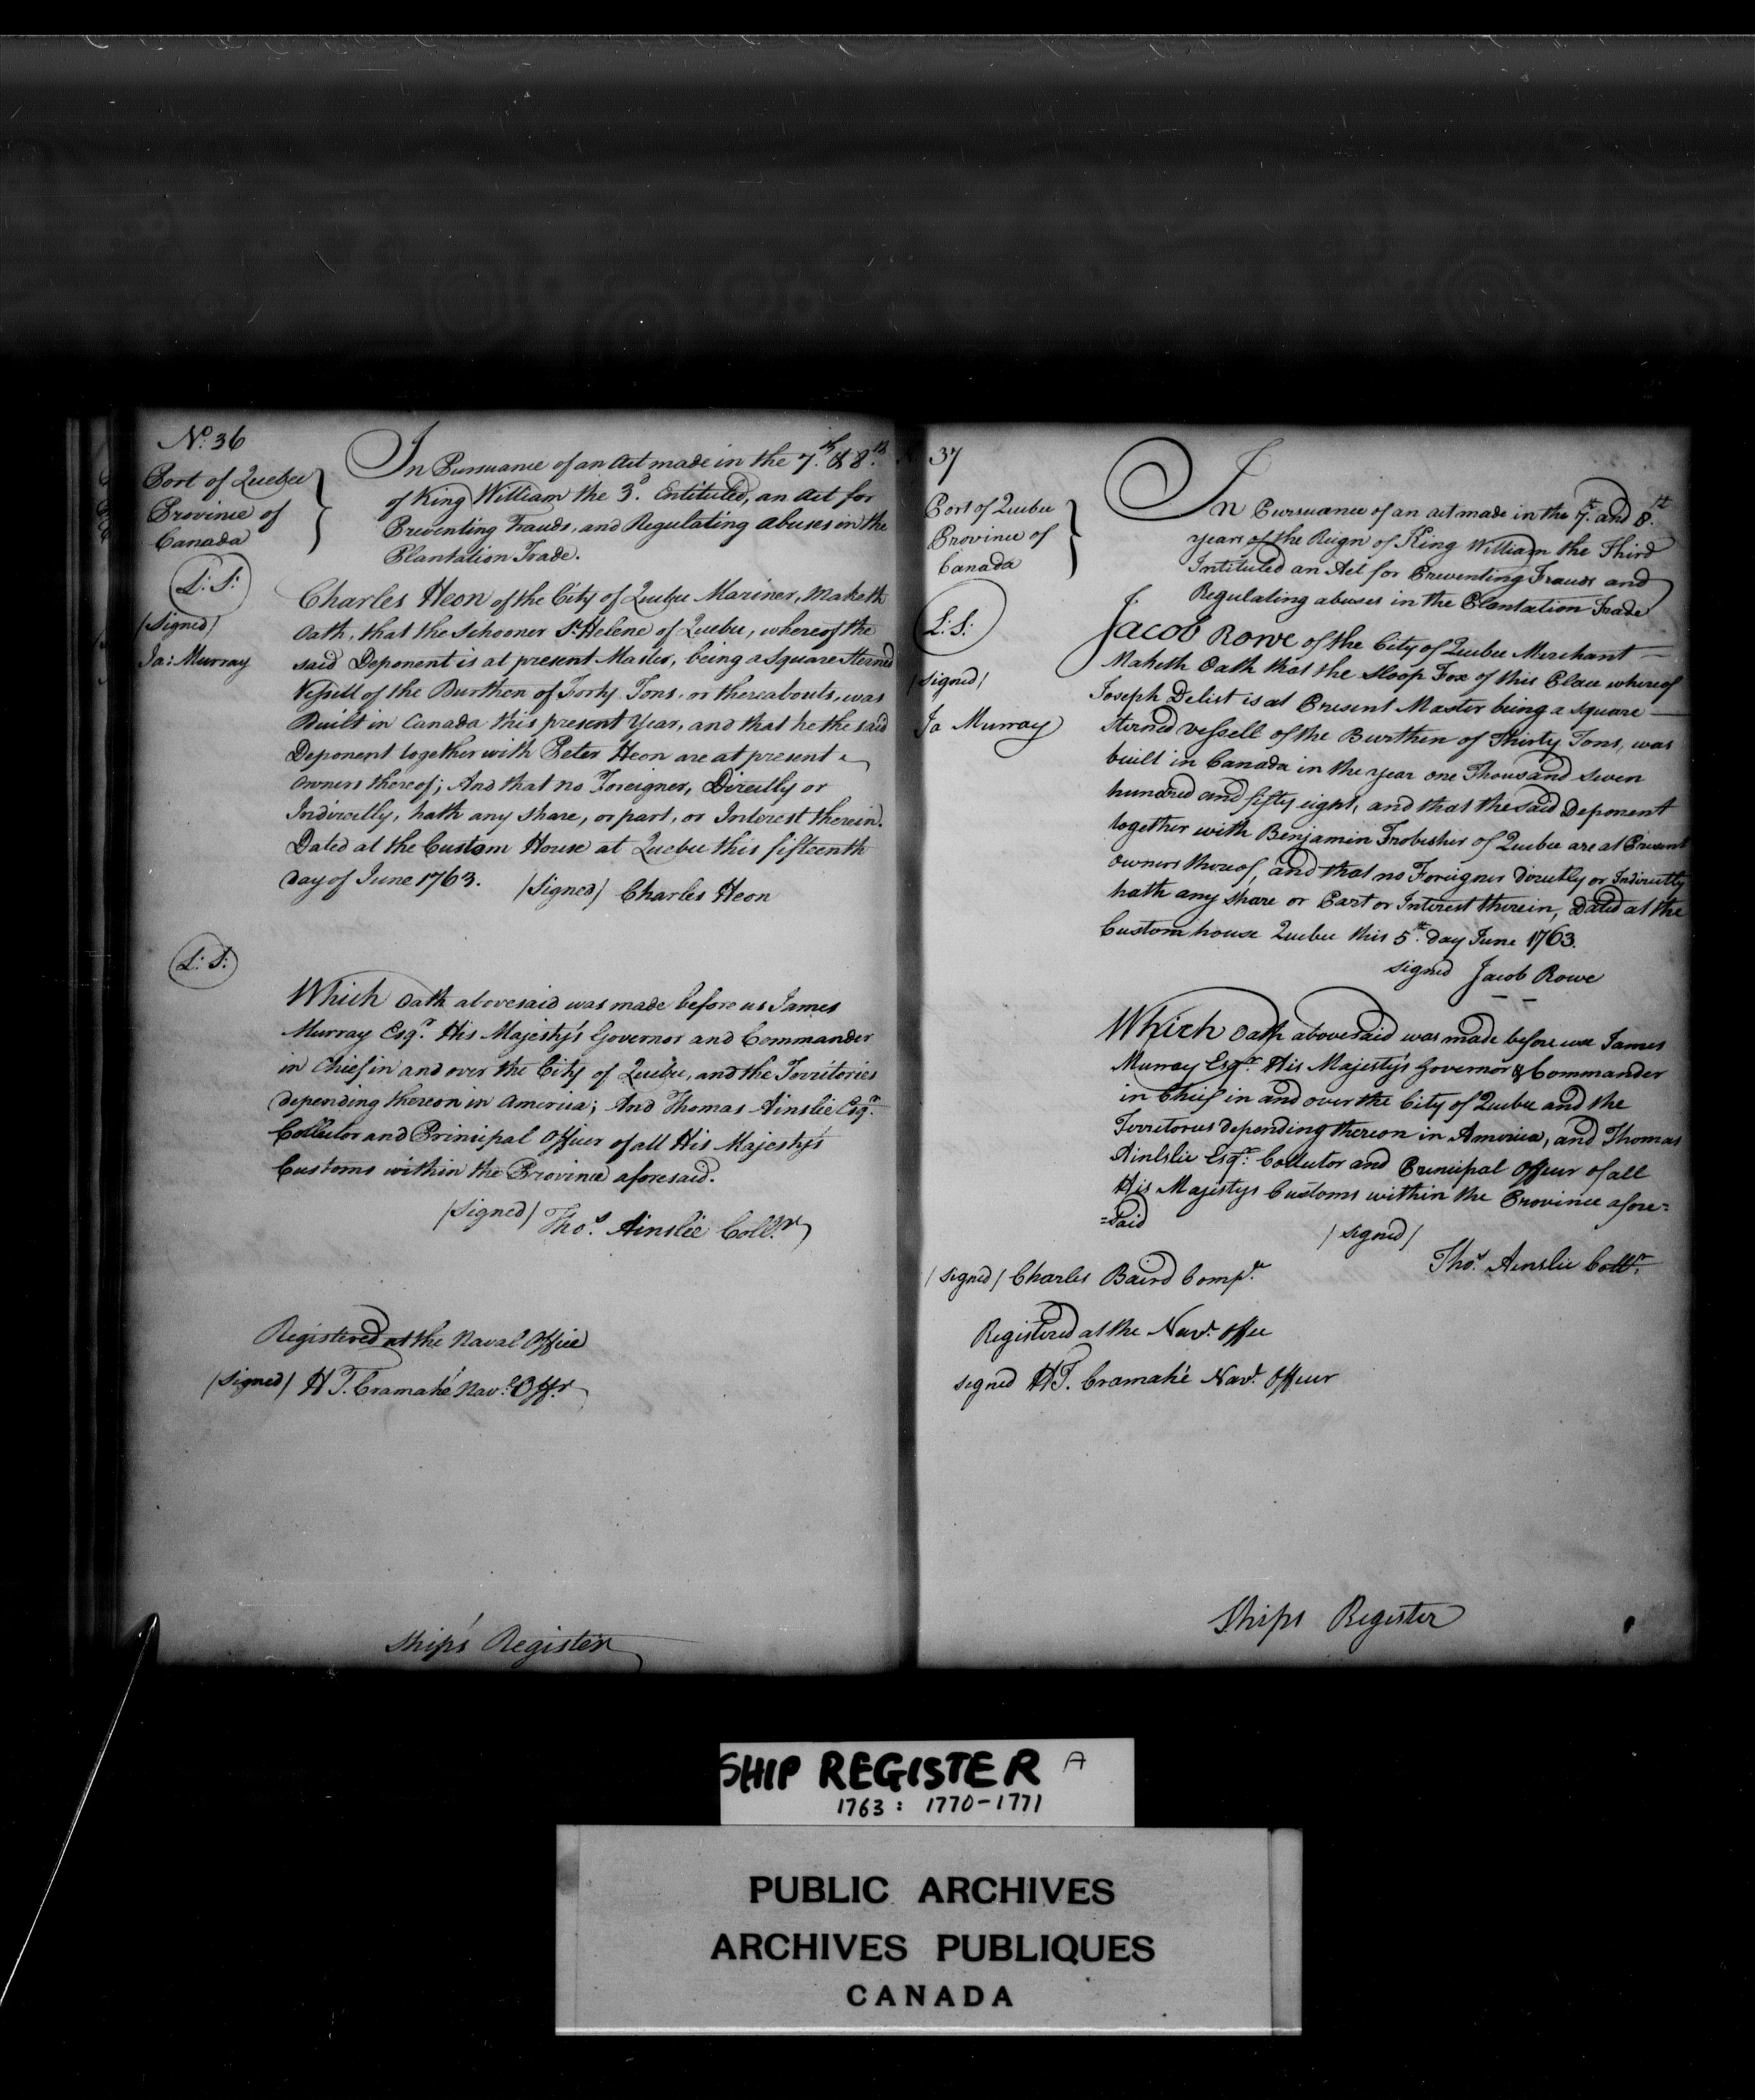 No. 36
Port of Quebec
Province of
Canada
L: S:
/Signed/
Ja: Murray
In Pursuance of an Act made in the 7.th & 8.th
of King William the 3.d Entituled, an Act for
Preventing Frauds, and Regulating abuses in the
Plantation Trade.
Charles Heon of the City of Quebec Mariner, Maketh
Oath, that the Schooner St. Helene of Quebec, whereof the
said Deponent is at present Master, being a Square Sterned
Vessell of the Burthen of Forty Tons, or thereabouts, was
Built in Canada this present Year, and that he the said
Deponent together with Peter Heon are at present
Owners thereof; And that no Foreigner, Directly or
Indirectly, hath any share, or part, or Interest therein.
Dated at the Custom House at Quebec this fifteenth
day of June 1763. /Signed/ Charles Heon
L: S:
Which Oath abovesaid was made before us James
Murray Esqr. His Majesty's Governor and Commander
in Chief in and over the City of Quebec, and the Territories
depending thereon in America; And Thomas Ainslie Esqr.
Collector and Principal Officer of all His Majesty's
Customs within the Province aforesaid.
/Signed/ Thos. Ainslie Collr.
Registered at the Naval Office
/Signed/ H T. Cramahé Navl. Offr.
Ship's Register
37
Port of Quebec
Province of
Canada
L: S:
/signed/
Ja Murray
In Pursuance of an act made in the 7.th and 8.th
years of the Reign of King William the Third
Intituled an Act for Preventing Frauds and
Regulating abuses in the Plantation Trade
Jacob Rowe of the City of Quebec Merchant
Maketh Oath that the Sloop Fox of this Place whereof
Joseph Delist is at Present Master being a square
sterned vessell of the Burthen of Thirty Tons, was
built in Canada in the year one Thousand seven
hundred and fifty eight, and that the said Deponent
together with Benjamin Frobisher of Quebec are at Present
owners thereof, and that no Foreigner Directly or Indirectly
hath any share or Part or Interest therein, Dated at the
Custom house Quebec this 5.th day June 1763.
signed Jacob Rowe
Which Oath abovesaid was made before us James
Murray Esqr. His Majesty's Governor & Commander
in Chief in and over the City of Quebec and the
Territorus depending thereon in America, and Thomas
Ainslie Esqr. Collector and Principal Officer of all
His Majestys Customs within the Province afore=
=said
/signed/
Thos. Ainslie Collr.
/signed/ Charles Baird Compr.
Registered at the Navl. Office
signed HT. Cramahé Navl. Officer
Ships Register
SHIP REGISTER A
1763: 1770-1771
PUBLIC ARCHIVES
ARCHIVES PUBLIQUES
CANADA